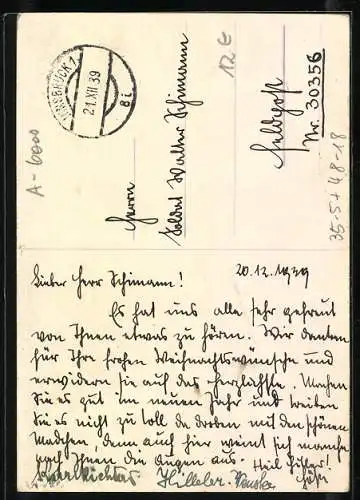 INNSBRUCK 1
21.XII 39
8 i
A-6000
12€
Herrn
Soldat Walter Schimann
Feldpost
Nr. 30356
35-5+48-18
20.12.1939
Lieber Herr Schimann!
Es hat uns alle sehr gefreut
von Ihnen etwas zu hören. Wir danken
für Ihre frohen Weihnachtswünsche und
erwidern sie auf das herzlichste. Machen
Sie es gut im neuen Jahr und treiben
Sie es nicht zu toll da droben mit den schönen
Mädchen, denn auch hier weint sich manche
nach Ihnen die Augen aus. Heil Hitler!